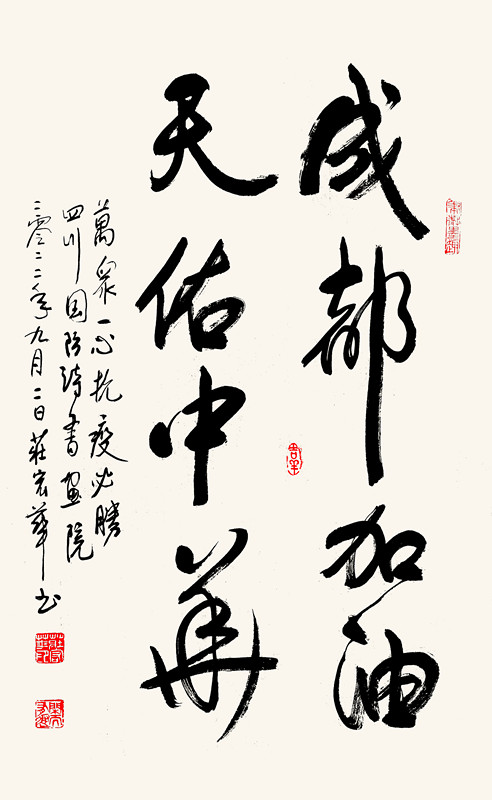 成都加油
天佑中華
萬眾一心抗疫必勝
四川国防詩書画院
二零二二年九月二日莊宏華书